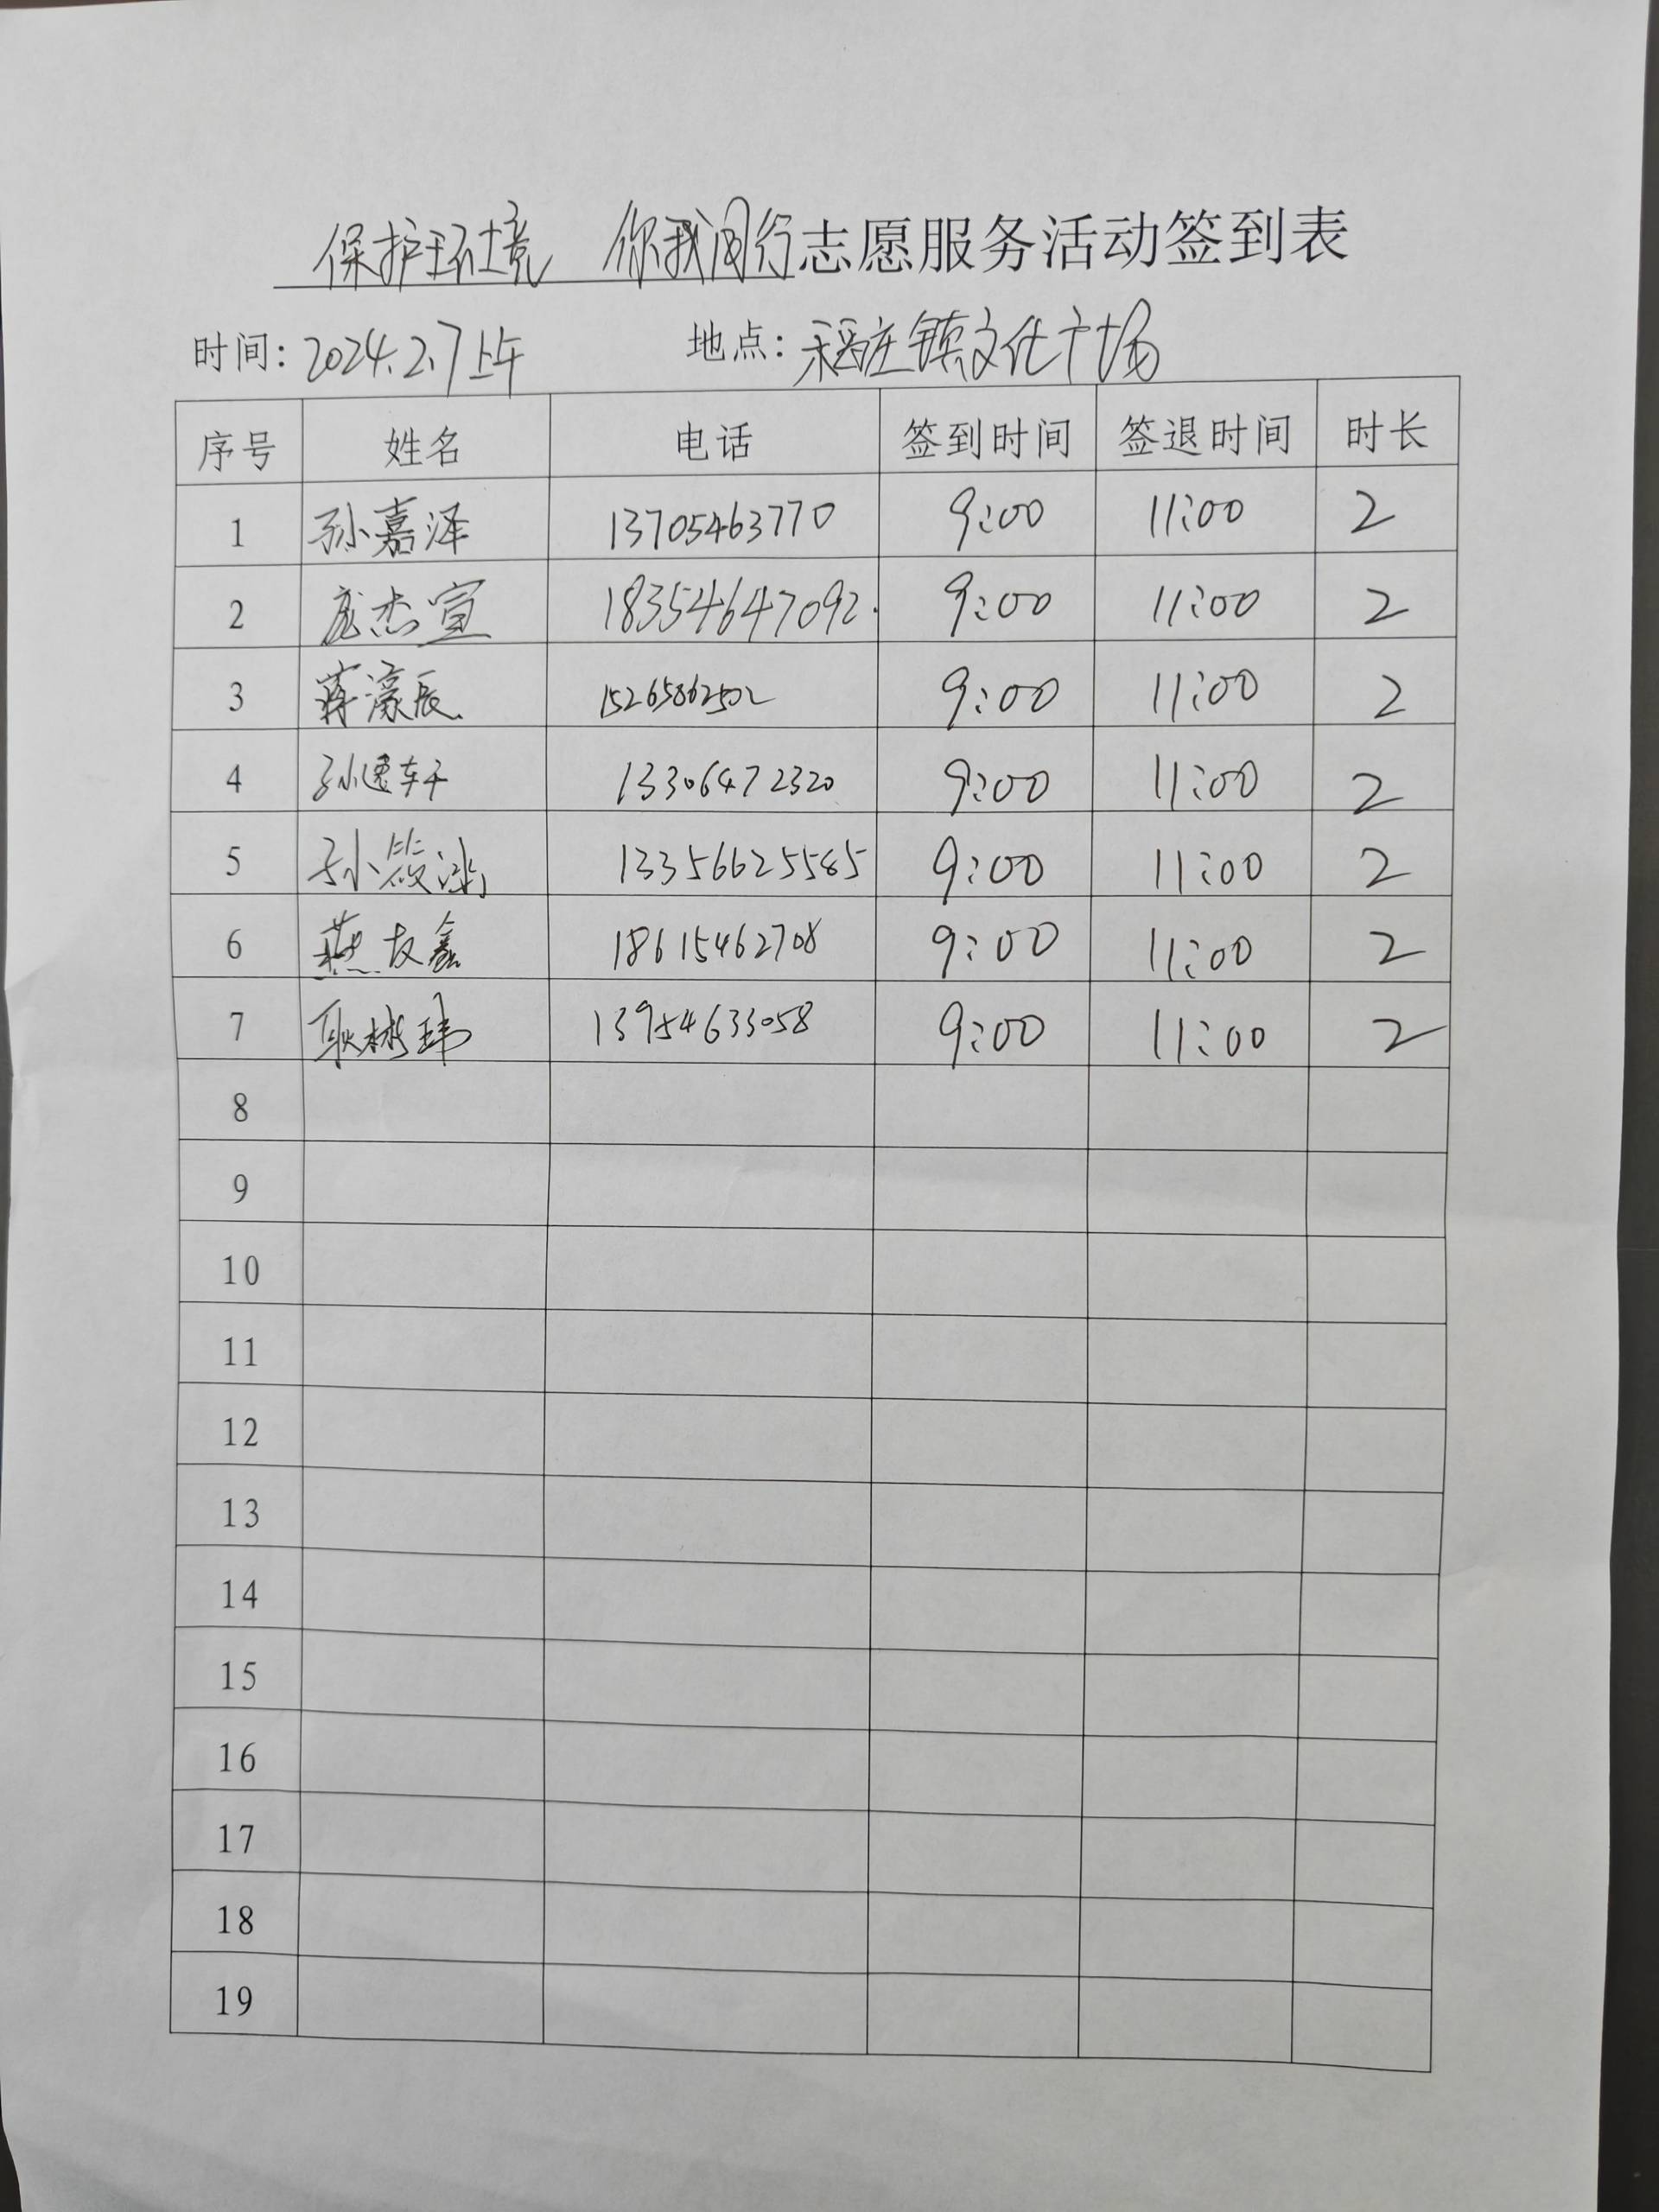 保护环境 你我同行志愿服务活动签到表
时间：2024.2.7上午 地点：稻庄镇文化广场
序号 姓名 电话 签到时间 签退时间 时长
1 孙嘉泽 13705463770 9:00 11:00 2
2 庞杰宣 18354647092. 9:00 11:00 2
3 蒋濠辰 15265862502 9:00 11:00 2
4 孙建轩 13306472320 9:00 11:00 2
5 孙筱 13356625585 9:00 11:00 2
6 燕友鑫 18615462708 9:00 11:00 2
7 耿彬玮 13954633058 9:00 11:00 2
8
9
10
11
12
13
14
15
16
17
18
19